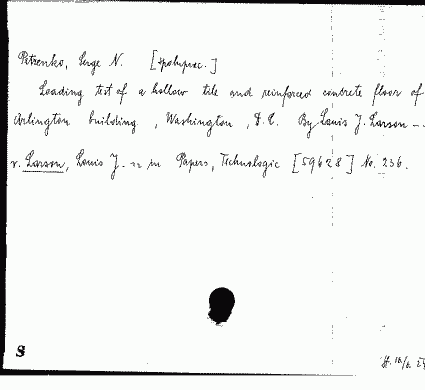 Petrenko, Serge N. [spoluprac.]
Loading test of a hollow tile and reinforced concrete floor of
Arlington building, Washington, D.C. By Louis J. Larson --
v. Larson, Louis J. -- in Papers, Technologic [59628] No. 236.
S